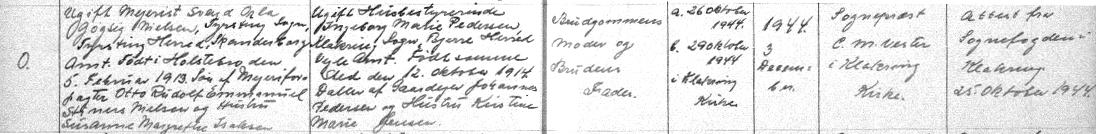 O.
Ugift Mejerist Svend Orla
Nielsen, Tyrsting Sogn,
Tyrsting Herred, Skanderborg
Amt. Født i Holstebro, den
5. Februar 1913. Søn af Mejerifor-
pagter Otto Rudolf Emmanuel
Nielsen og Hustru
Susanne Margrethe Isaksen
Ugift Husbestyrerinde
Ingeborg Marie Pedersen,
Klakring Sogn, Bjerre Herred
Vejle Amt. Født samme
Sted den 12. Oktober 1914
Datter af Gaardejer Johannes
Pedersen og Hustru Kirstine
Marie Jensen.
Brudgommens
Moder og
Brudens
Fader.
a. 26 Oktober
1944.
b. 29 Oktober
1944
i Klakring
Kirke
1944.
3
Decem-
ber.
Sognepræst
C. M. Vester
i Klakring
Kirke.
Attest fra
Sognefogden i
Klakring
25. Oktober 1944.